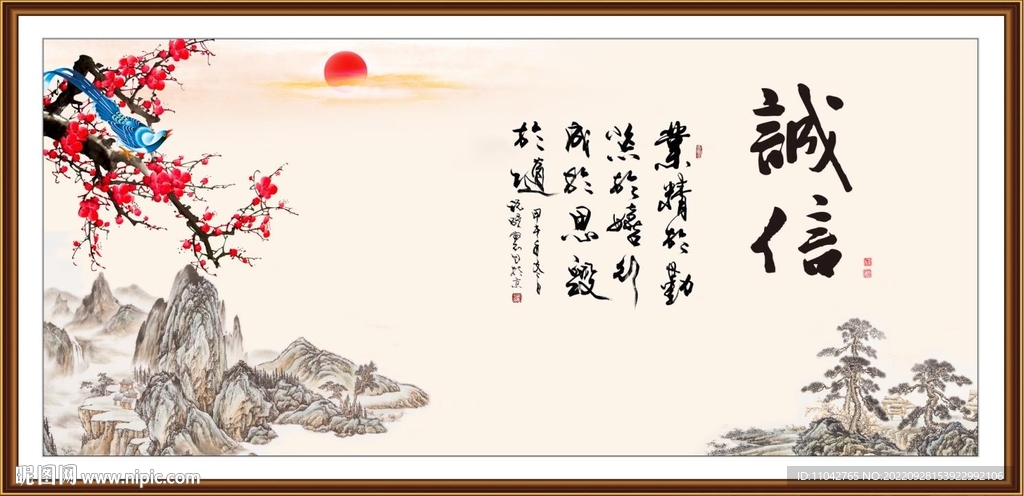 誠信
業精於勤
荒於嬉行
成於思毀
於隨
昵图网 www.nipic.com
ID:11042765 NO:20220928153922992106